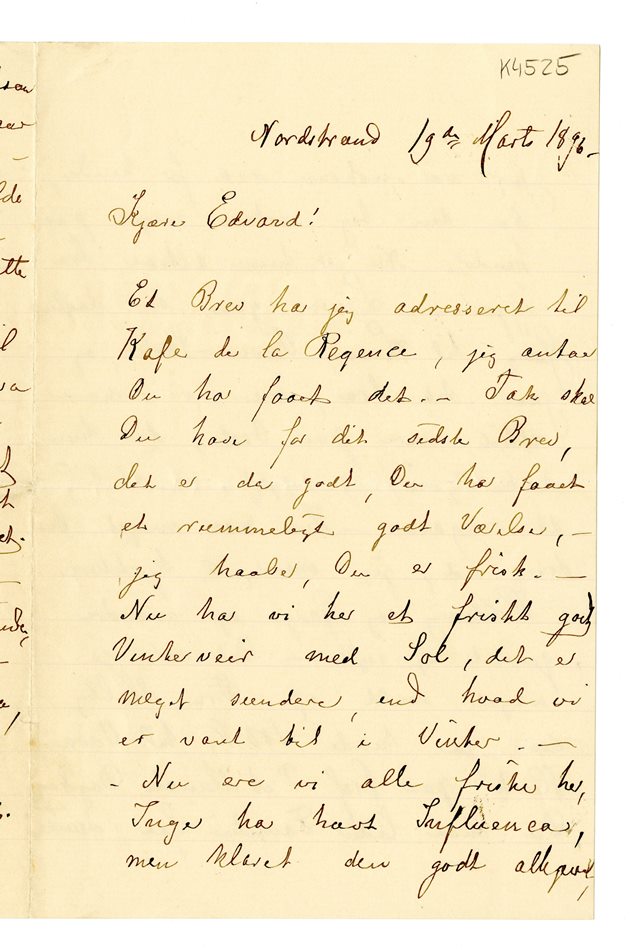 K4525
Nordstrand 19de Marts 1896.
Kjære Edvard!
Et Brev har jeg adresseret til
Kafe de la Regence, jeg antar
Du har faaet det. – Tak skal
Du have for dit sidste Brev,
det er da godt, Du har faaet
et rummeligt godt Værelse, –
jeg haaber, Du er frisk. –
Nu har vi her et friskt godt
Vinterveir med Sol, det er
meget sundere, end hvad vi
er vant til i Vinter. –
– Nu ere vi alle friske her,
Inger har havt Influenca,
men klaret den godt